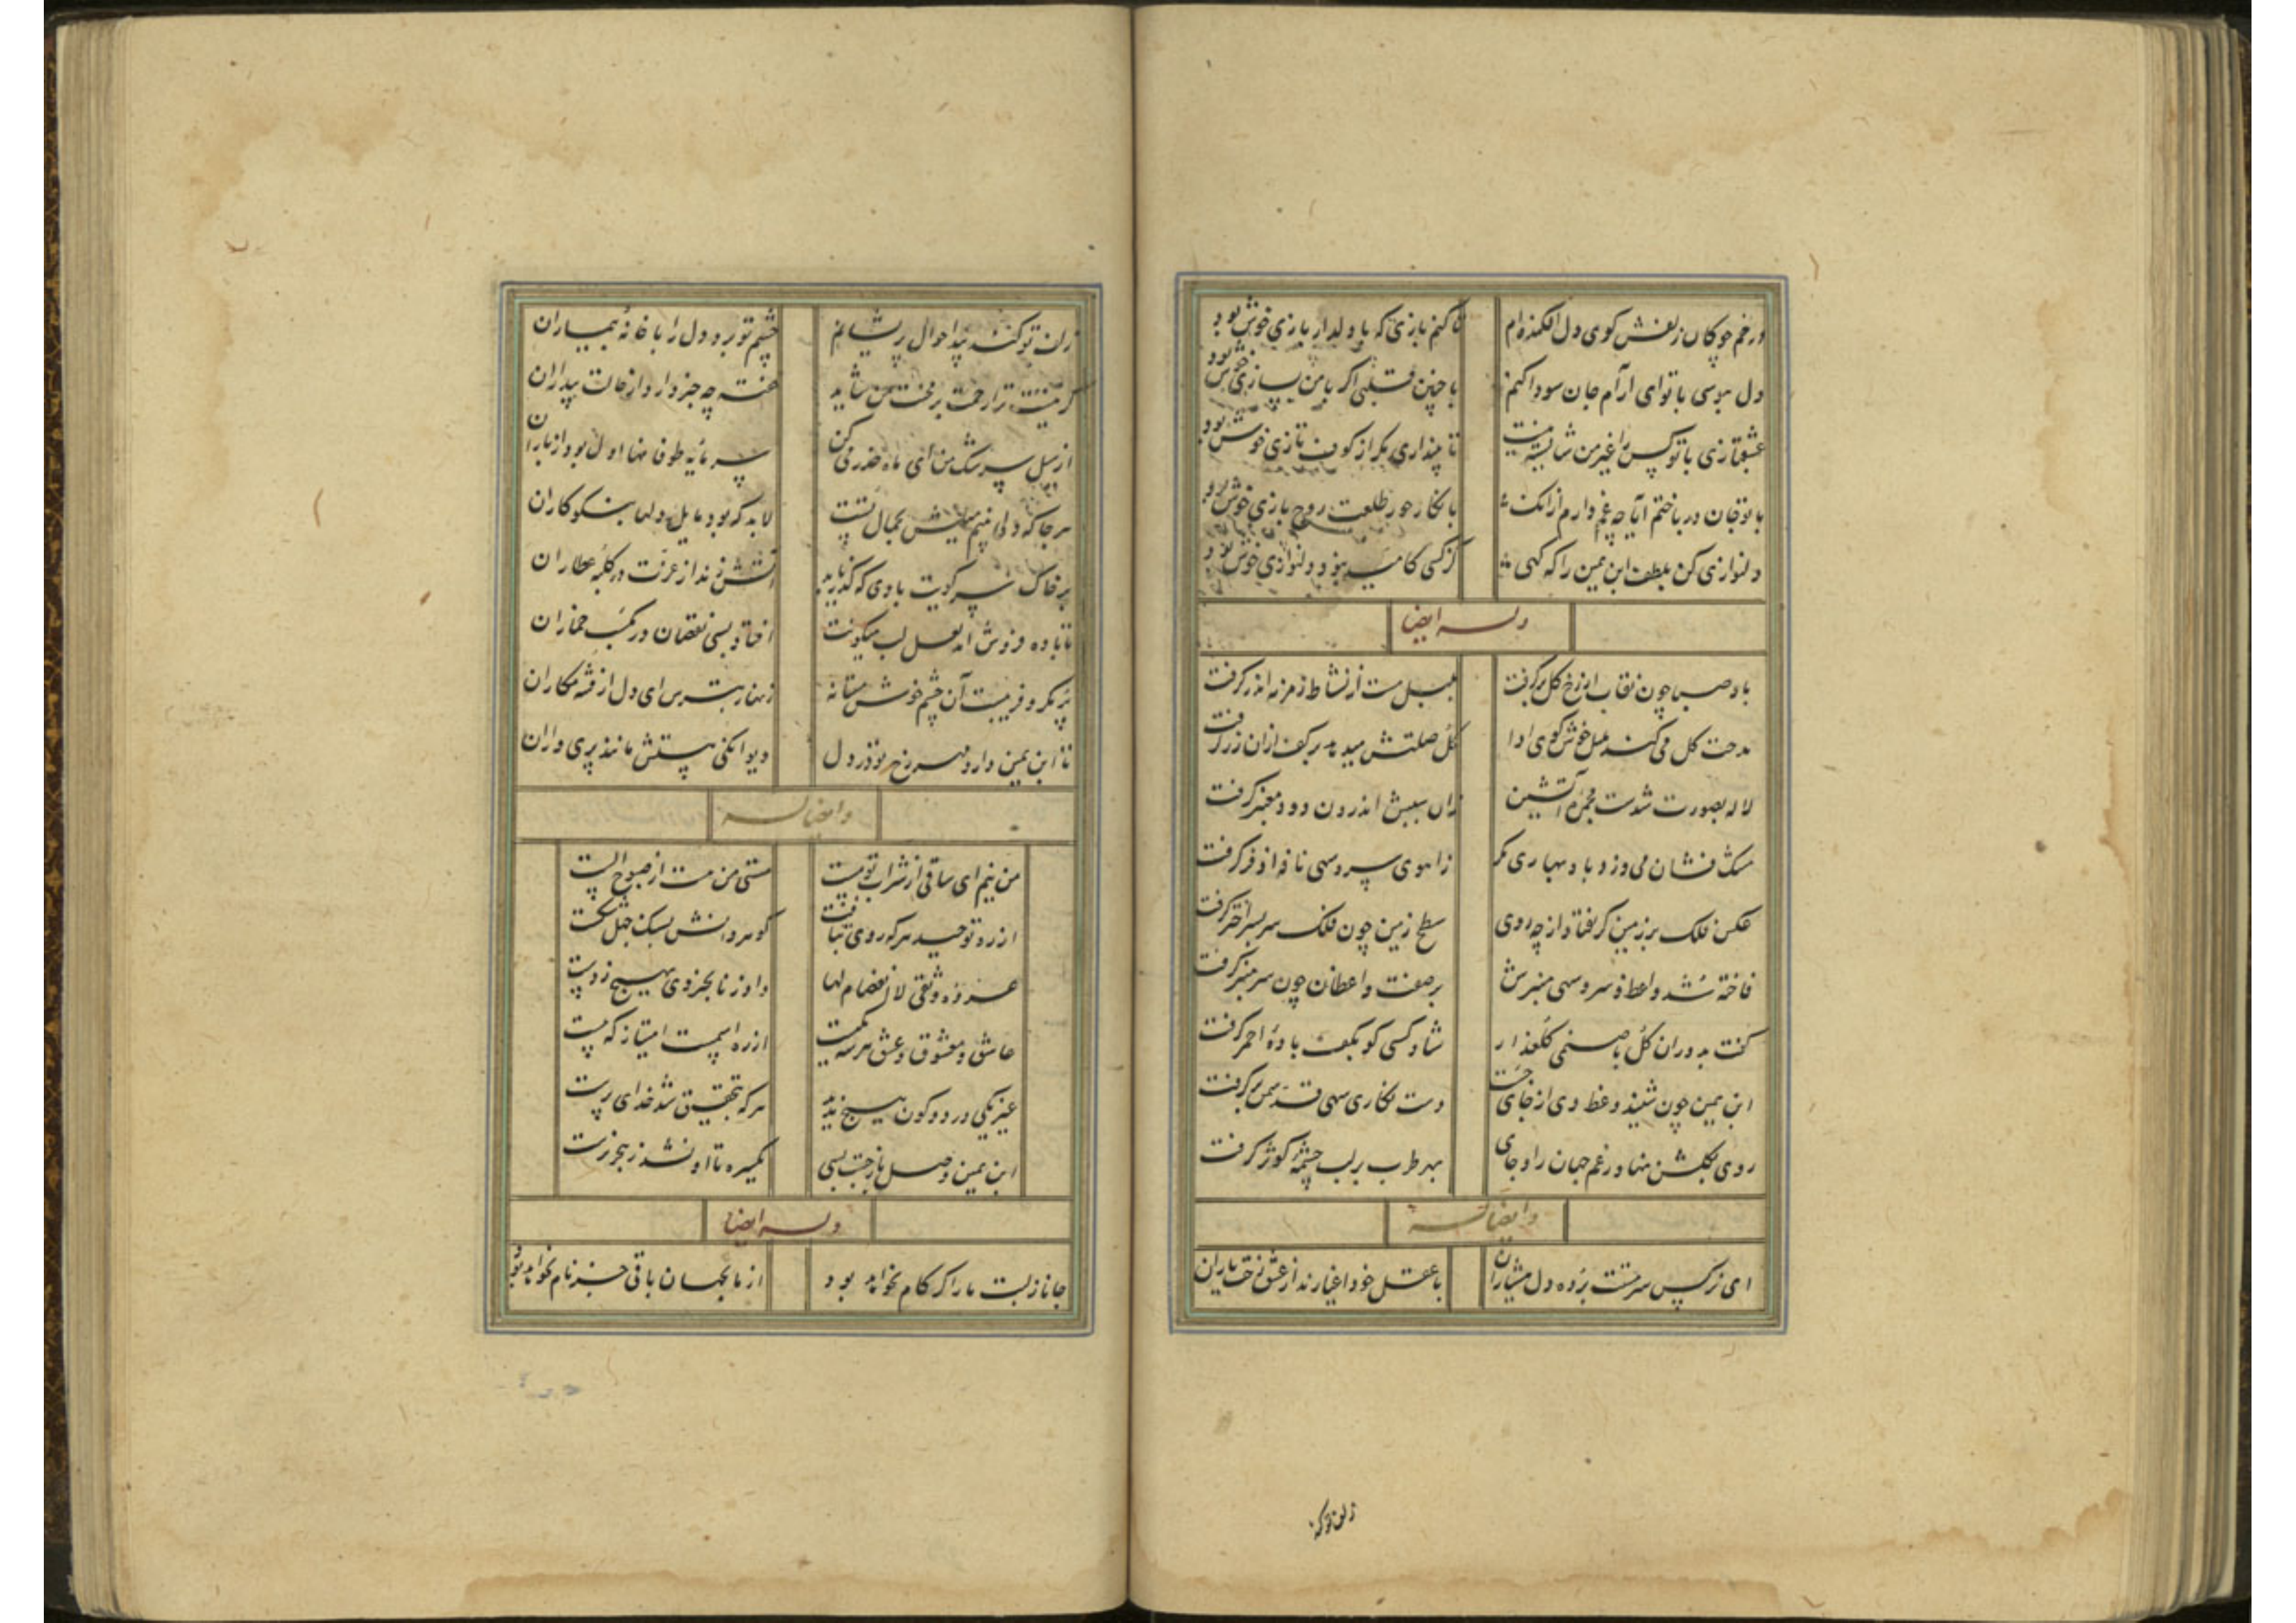 در خم چوکان زلفش کوی دل افکنده‌ام تا کنم بازی که با دلدار بازی خوش بود
دل بوسی با تو ای آرام جان سودا کنم با چنین قلبی اگر با من بسازی خوش بود
عشقبازی با تو کس را غیر من شایسته نیست تا نپنداری مکر از کوف تازی خوش بود
با تو جان در باختم آیا چه غم دارم از آنک با نکار حور طلعت روح بازی خوش بود
دلنوازی کن بلطف ابن یمین را که کهی کز کسی کامید بود دلنوازی خوش بود
وله ایضا
باد صبا چون نقاب از رخ کل برکرفت بلبل مست از نشاط زمزمه اندر کرفت
مدحت کل می کند بلبل خوش کوی ادا کل صلتش میدهد بر کف از آن زر کرفت
لاله بصورت شدست مجمره آتشین زان سببش اندرون دود معنبر کرفت
مشک فشان می وزد باد بهاری مکر زاهوی سر و سهی نافه اذفر کرفت
عکس فلک بر زمین کر نفتاد از چه روی سطح زمین چون فلک سر بسر اختر کرفت
فاخته شد واعظ و سرو سهی منبرش بر صفت واعظان چون سر منبر کرفت
کفت بدوران کل با صنمی کلعذار شاد کسی کو بکف باده احمر کرفت
ابن یمین چون شنید وعظ وی از جای جست دست نکاری سهی قد سمن بر کرفت
روی بکلشن نهاد رغم جهان را و جای بهر طرب بر لب چشمه کوثر کرفت
وایضا له
ای نرکس سرمستت برده دل هشیاران با عقل خود اغیارند از عشق رخت یاران
زلف تو که
زلف تو کند پیدا احوال پریشانم چشم تو برد دل را با خانه بیماران
کر نیست ترا رحمت بر بخت من شاید خفته چه خبر دارد از حالت بیداران
از سیل سرشک من ای ماه حذر می کن سرمایه طوفانها اول بود از باران
هر جا که دلی بینم میلش بجمال تست لابد که بود مایل دلها بنکوکاران
بر خاک سر کویت بادی که کذر یابد آتش زند از عزت در کلبه عطاران
تا باده فروش آمد لعل لب میکونت افتاد بسی نقصان در مکسب خماران
پر مکر و فریبست آن چشم خوش مستانه زنهار بترس ای دل از فتنه مکاران
تا ابن یمین دارد مهر رخ تو در دل دیوانکی هستش مانند پری داران
وایضا له
من نیم ای ساقی از شراب تو مست مستی من هست از صبوح الست
از ره توحید هر که روی بتافت کوهر دانش بسنک جهل شکست
عروه وثقی لا انفصام لها داد ز نابخردی بهیچ ز دست
عاشق و معشوق و عشق هر سه یکیست از ره اسمست امتیاز که هست
غیر یکی در دو کون هیچ ندید هر که بتحقیق شد خدای پرست
ابن یمین وصل یار جست بسی یکسره تا او نشد ز هجر نرست
وله ایضا
جانا ز لبت ما را کر کام نخواهد بود از ما بجهان باقی جز نام نخواهد بود